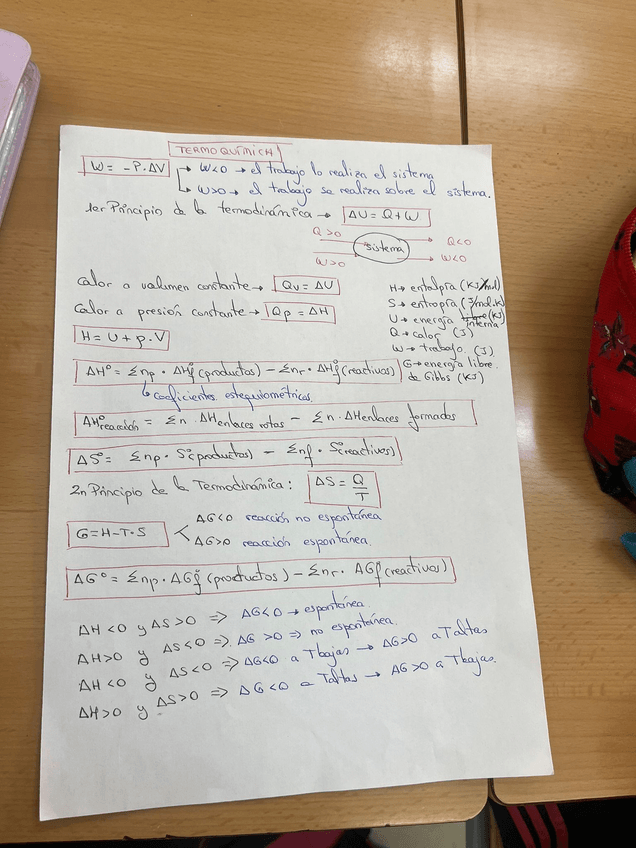 TERMOQUÍMICA
W = -P·ΔV → W<0 → el trabajo lo realiza el sistema
→ W>0 → el trabajo se realiza sobre el sistema.
1er Principio de la termodinámica → ΔU = Q + W
Q>0 Q<0
sistema
W>0 W<0
Calor a volumen constante → Qv = ΔU
Calor a presión constante → Qp = ΔH
H = U + p·V
H → entalpía (KJ/mol)
S → entropía (J/mol·K)
U → energía interna (KJ)
Q → calor (J)
W → trabajo (J)
G → energía libre
de Gibbs (KJ)
ΔH° = Σnp · ΔHf° (productos) - Σnr · ΔHf° (reactivos)
↳ coeficientes estequiométricos
ΔH° reacción = Σn · ΔH enlaces rotos - Σn · ΔH enlaces formados
ΔS° = Σnp · S° (productos) - Σnf · S° (reactivos)
2n Principio de la Termodinámica: ΔS = Q/T
G = H-T·S < ΔG<0 reacción no espontánea
ΔG>0 reacción espontánea.
ΔG° = Σnp · ΔGf° (productos) - Σnr · ΔGf° (reactivos)
ΔH<0 y ΔS>0 => ΔG<0 → espontánea.
ΔH>0 y ΔS<0 => ΔG>0 => no espontánea.
ΔH<0 y ΔS<0 => ΔG<0 a Tbajas → ΔG>0 a Taltas
ΔH>0 y ΔS>0 => ΔG<0 a Taltas → ΔG>0 a Tbajas.